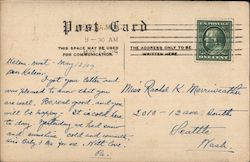 Post Card
9-30 AM
THIS SPACE MAY BE USED
FOR COMMUNICATION.
THE ADDRESS ONLY TO BE
WRITTEN HERE
ONE CENT
Helena Mont - May
I got your letter and
was pleased to hear that you
are well. Be real good and you
will be happy. It is cool here
to day. Yesterday we had snow
and sunshine, cold and
Miss Rachel K. Merriweather
2010 - 12 ave South
Seattle
Wash.